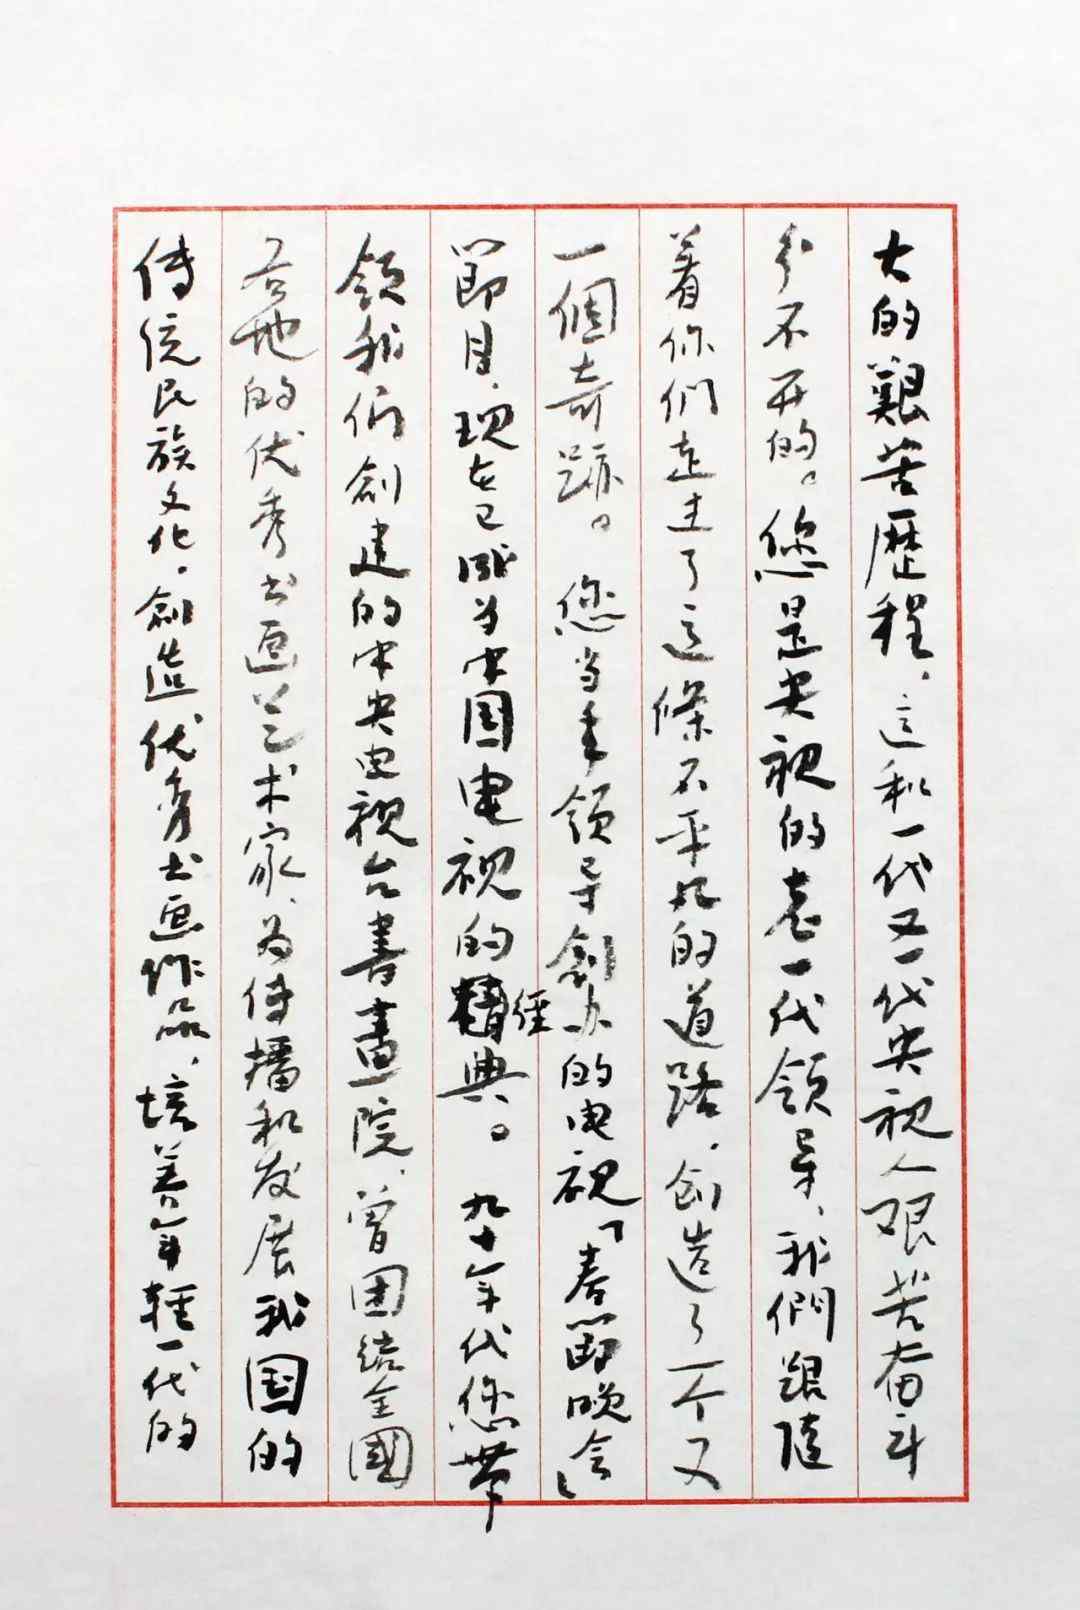 大的艱苦歷程，这和一代又一代央视人艰苦奋斗
分不开的。您是央视的老一代领导，我們跟随
着你们走过了这條不平凡的道路，创造了一个又
一個奇跡。您当年领导創办的电视「春節晚会」
節目，现在已成为中国电视的經典。九十年代您带
領我们創建的中央电视台書畫院，曾团结全國
各地的优秀书画艺术家，为传播和发展我国的
传统民族文化，創造优秀书画作品，培养年轻一代的